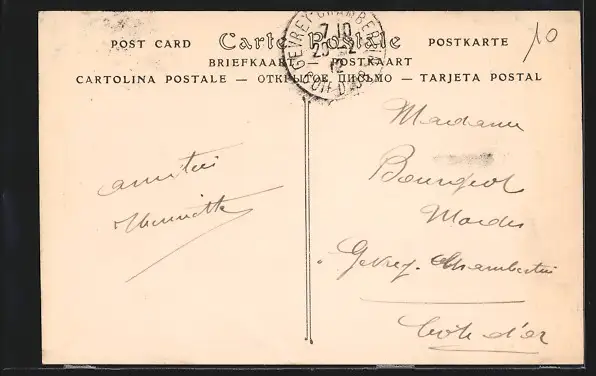 POST CARD Carte Postale POSTKARTE
BRIEFKAART — POSTKAART
CARTOLINA POSTALE — ОТКРЫТОЕ ПИСЬМО — TARJETA POSTAL
GEVREY-CHAMBERTIN
7 10
23 - 2
12
COTE D'OR
10
amitiés
Henriette
Madame
Bourgeot
Gevrey-Chambertin
Côte d'or